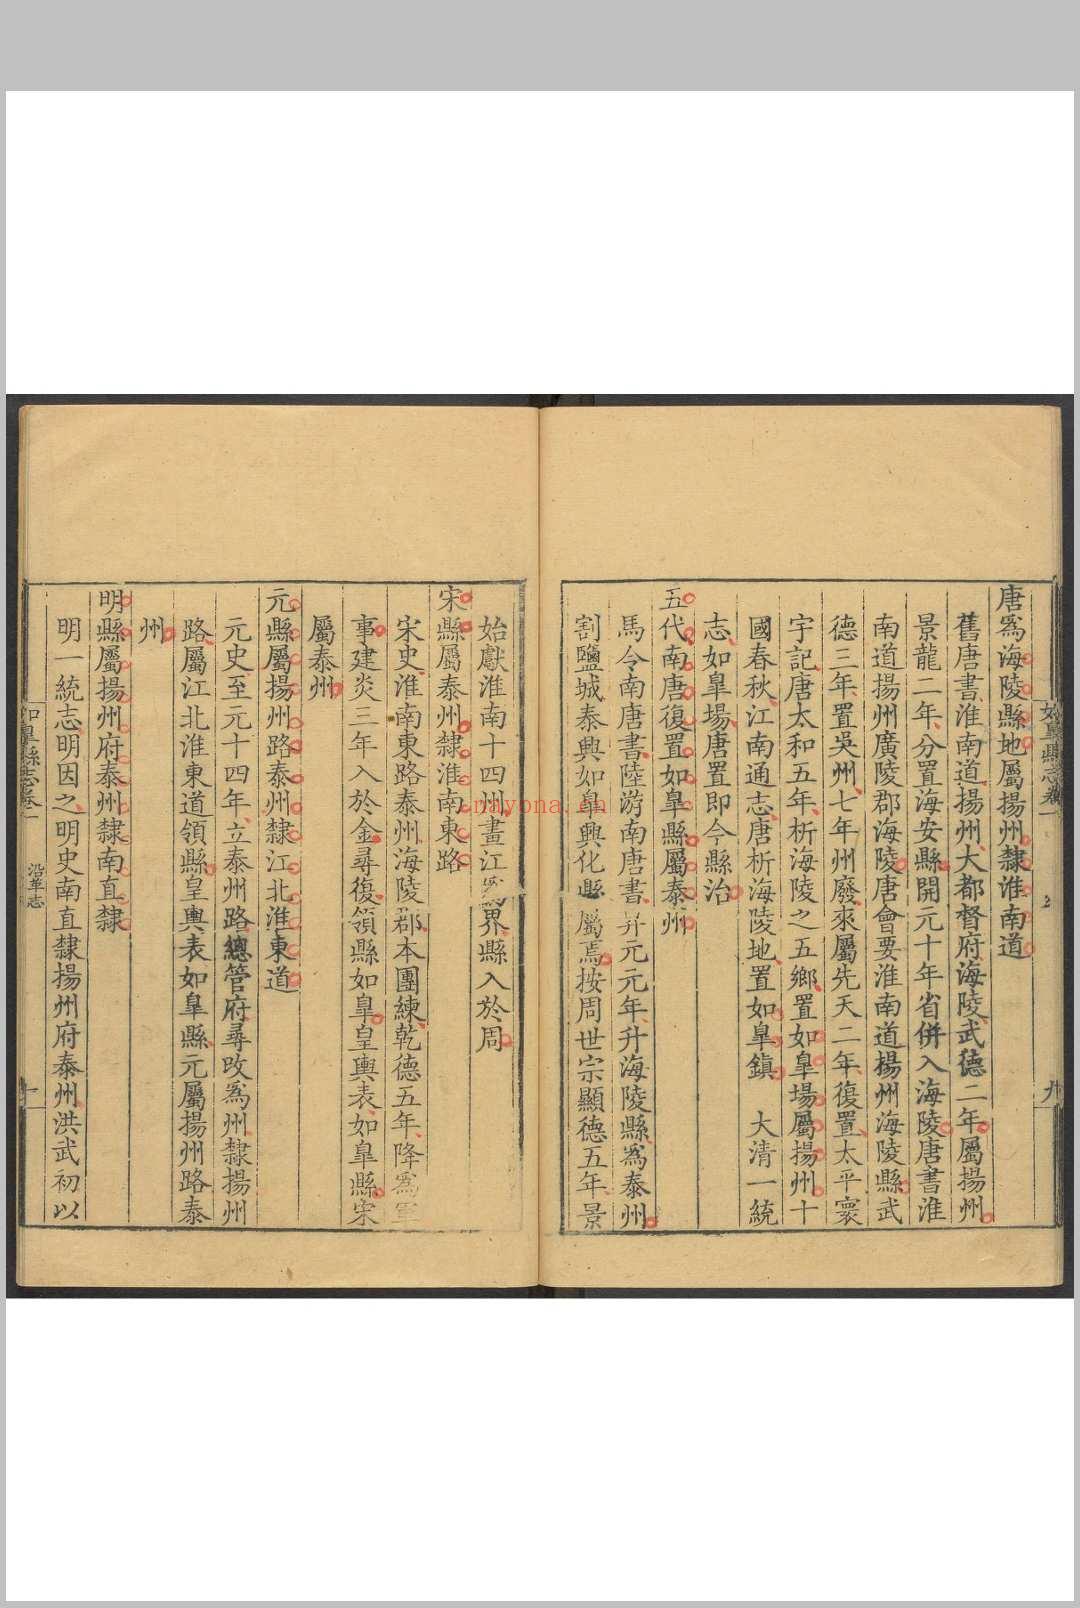 唐爲海陵縣地屬揚州隸淮南道
舊唐書淮南道揚州大都督府海陵武德二年屬揚州
景龍二年分置海安縣開元十年省併入海陵唐書淮
南道揚州廣陵郡海陵唐會要淮南道揚州海陵縣武
德三年置吳州七年州廢來屬先天二年復置太平寰
宇記唐太和五年析海陵之五鄉置如皐場屬揚州十
國春秋江南通志唐析海陵地置如皐鎮 大清一統
志如皐場唐置即今縣治
五代南唐復置如皐縣屬泰州
馬令南唐書陸游南唐書昇元元年升海陵縣爲泰州
割鹽城泰興如皐興化縣屬焉按周世宗顯德五年景
始獻淮南十四州畫江爲界縣入於周
宋縣屬泰州隸淮南東路
宋史淮南東路泰州海陵郡本團練乾德五年降爲軍
事建炎三年入於金尋復領縣如皐皇輿表如皐縣宋
屬泰州
元縣屬揚州路泰州隸江北淮東道
元史至元十四年立泰州路總管府尋攺爲州隸揚州
路屬江北淮東道領縣皇輿表如皐縣元屬揚州路泰
州
明縣屬揚州府泰州隸南直隸
明一統志明因之明史南直隸揚州府泰州洪武初以
如皐縣志卷一
沿革志
九
nayona.cn